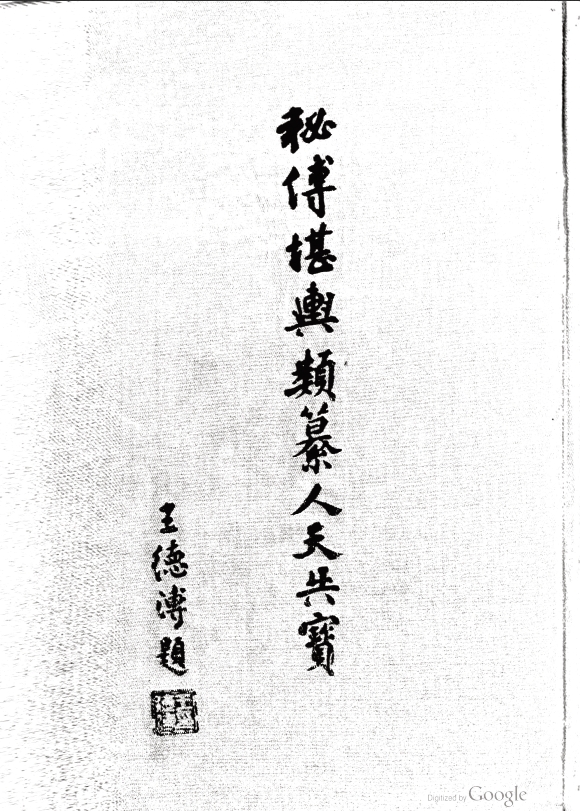 秘傳堪輿類纂人天共寶
王德溥題
Digitized by Google